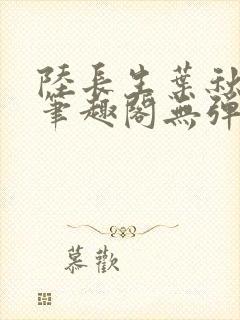 陸長生葉秋
筆趣閣無彈
慕歡